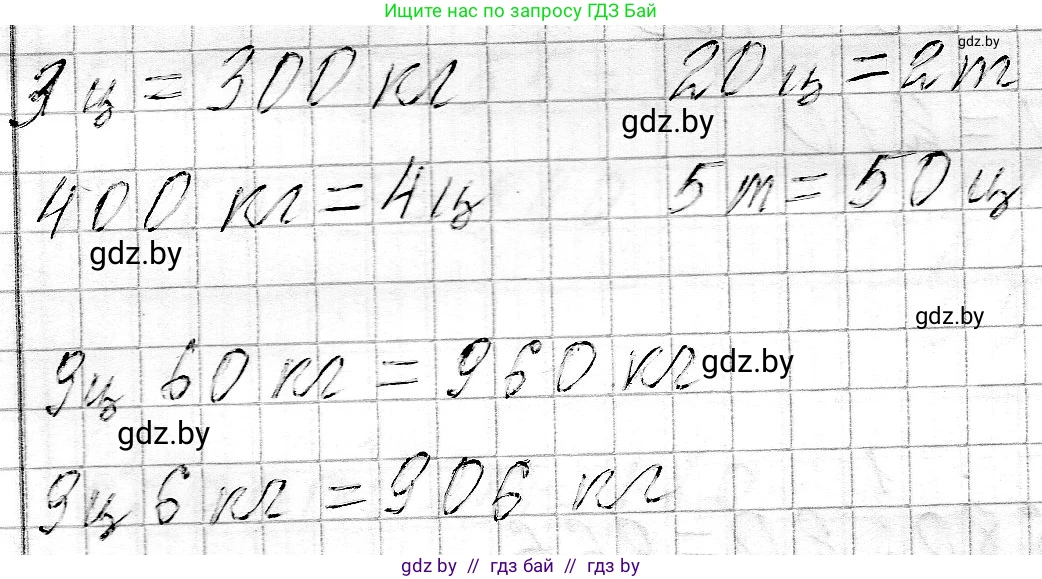 Ищите нас по запросу ГДЗ Бай
gdz.by
3 ц = 300 кг 20 ц = 2 т
gdz.by
400 кг = 4 ц 5 т = 50 ц
gdz.by
gdz.by
9ц 60 кг = 960 кг gdz.by
gdz.by
9ц 6 кг = 906 кг
gdz.by // гдз бай // гдз by